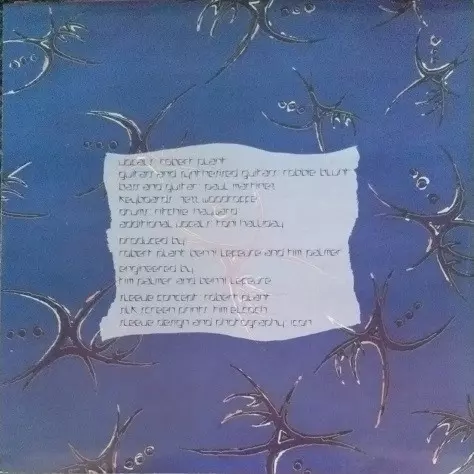 vocals: robert plant
guitars and synthesized guitars: robbie blunt
bass and guitar: paul martinez
keyboards: jezz woodroffe
drums: ritchie hayward
additional vocals: toni halliday
produced by
robert plant benji lefevre and tim palmer
engineered by
tim palmer and benji lefevre
sleeve concept: robert plant
silk screen prints: kim
sleeve design and photography: icon